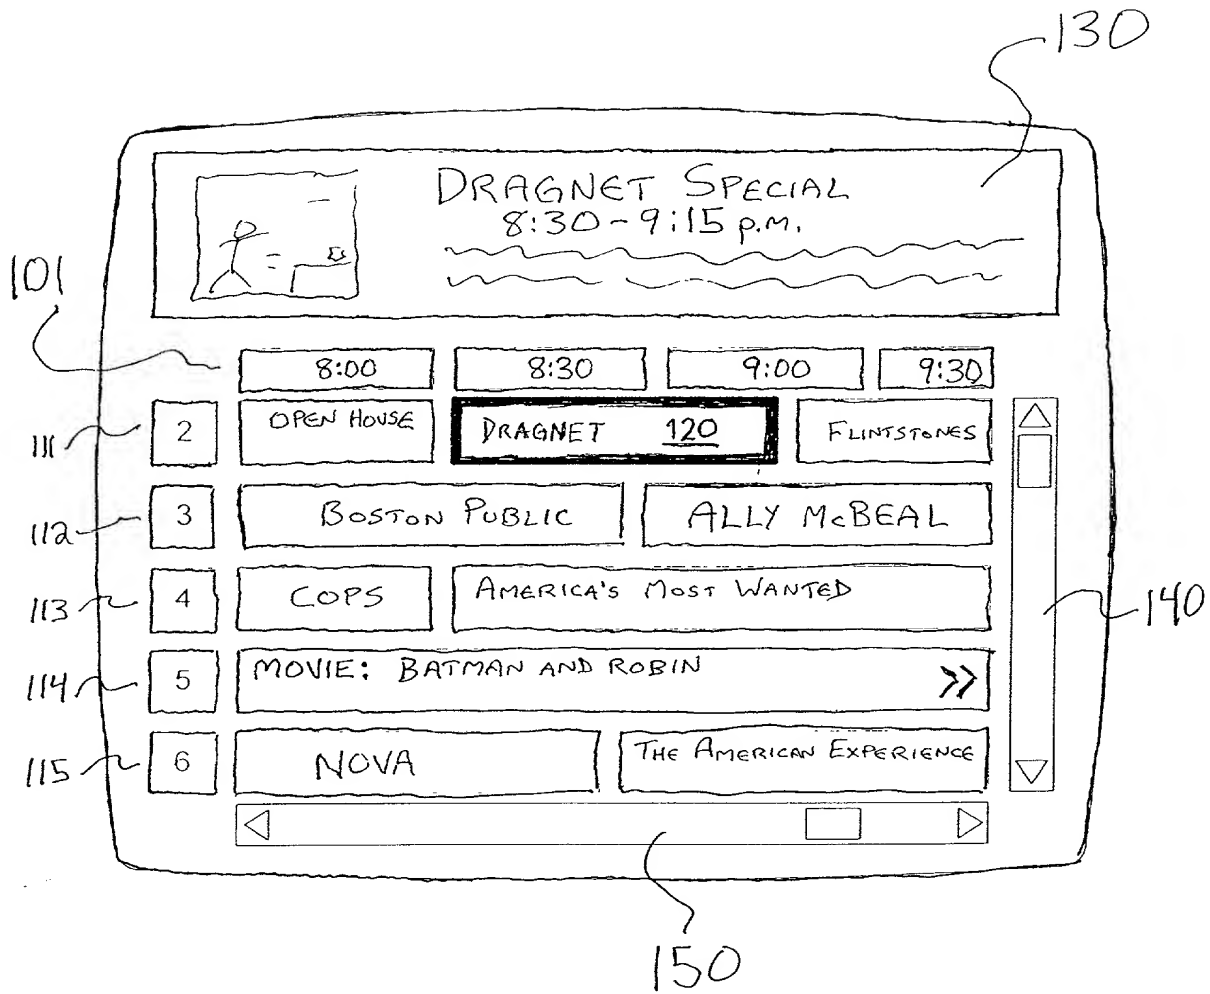 130
DRAGNET SPECIAL
8:30-9:15 p.m.
101
8:00 8:30 9:00 9:30
111 2 OPEN HOUSE DRAGNET 120 FLINTSTONES
112 3 BOSTON PUBLIC ALLY McBEAL
113 4 COPS AMERICA'S MOST WANTED
140
114 5 MOVIE: BATMAN AND ROBIN »
115 6 NOVA THE AMERICAN EXPERIENCE
150